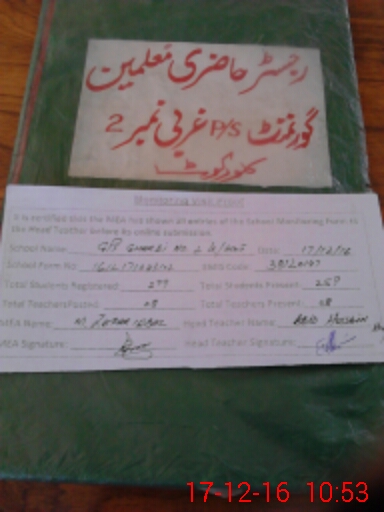 رجسٹر حاضری معلمین
گورنمنٹ P/S غربی نمبر 2
Monitoring Visit Proof
It is certified that the MEA has shown all entries of the School Monitoring Form to
the Head Teacher before its online submission.
School Name: GPS Gharbi No. 2 Date: 17/12/16
School Form No EMIS Code:
Total Students Registered: 277 Total Students Present: 257
Total Teachers Posted: 08 Total Teachers Present: 08
MEA Name: M. Zafar Iqbal Head Teacher Name: Abid Hussain
MEA Signature: Head Teacher Signature:
17-12-16 10:53